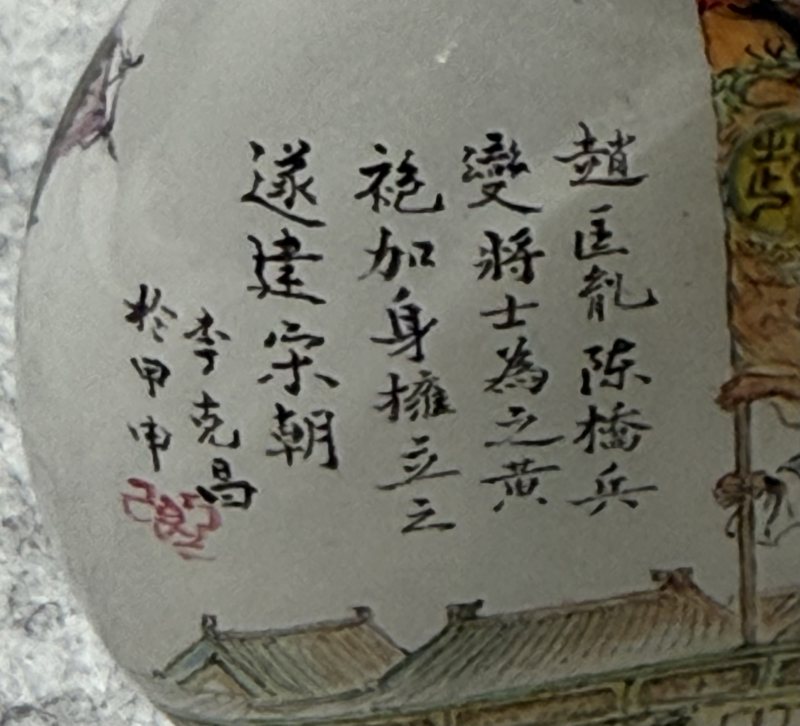 趙匡胤陈橋兵
變將士為之黄
袍加身擁立之
遂建宋朝
李克昌
於甲申